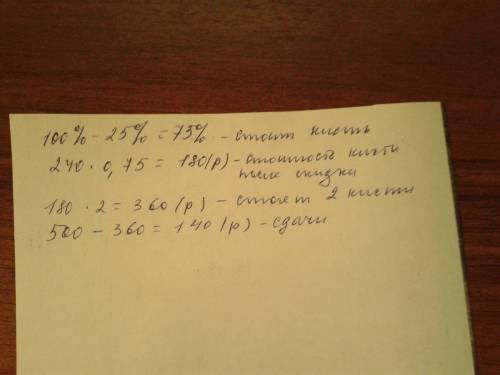 100% - 25% = 75% - стоит кисть
240 · 0,75 = 180(р) - стоимость кисти
после скидки
180 · 2 = 360 (р) - стоят 2 кисти
500 - 360 = 140 (р) - сдачи